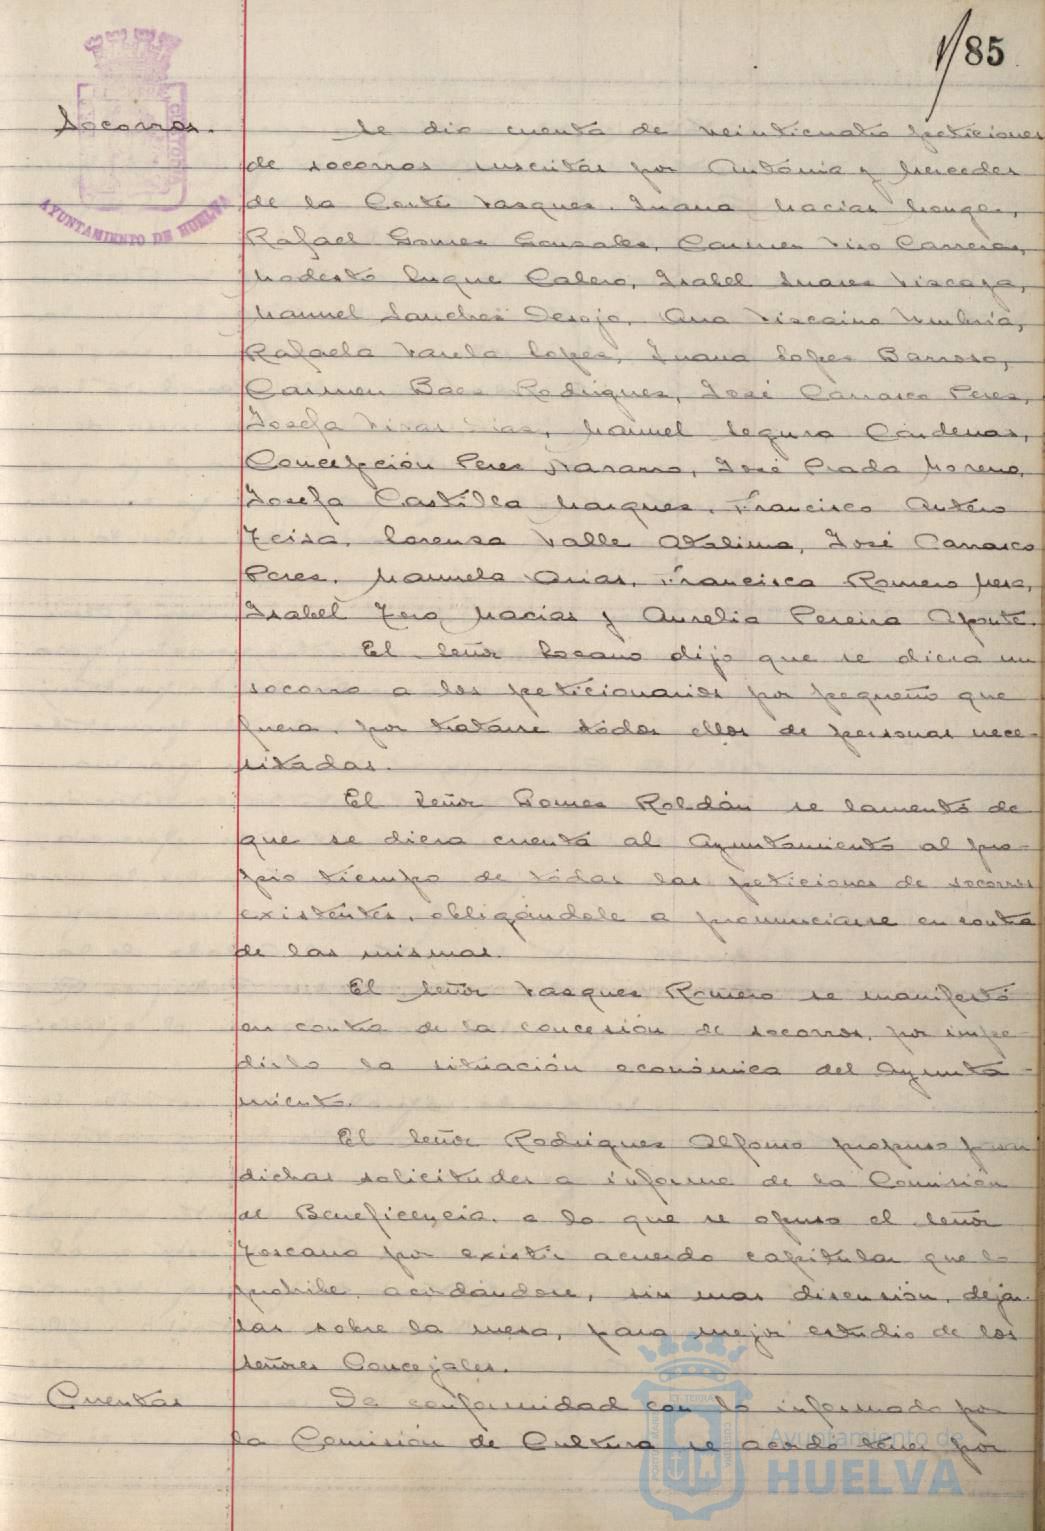 85
Socorros.
Se dio cuenta de veinticuatro peticiones
de socorros suscritas por Antonia y Mercedes
de la Corte Vasques, Juana Macias Monge,
Rafael Gomes Gonsales, Carmen Viso Carreras,
Modesto Luque Calero, Isabel Suares Viscaya,
Manuel Sanches Desojo, Ana Viscaino Umbria,
Rafaela Varela Lopes, Juana Lopes Barroso,
Carmen Baes Rodrigues, José Carrasco Peres,
Josefa Vivas Dias, Manuel Segura Cárdenas,
Concepción Peres Navarro, José Prada Moreno,
Josefa Castilla Marques, Francisco Antero
Lorensa Valle José Carrasco
Peres, Manuela Arias, Francisca Romero Mesa,
Isabel Toro Macias y Aurelia Pereira Aponte.
El señor Toscano dijo que se diera un
socorro a los peticionarios por pequeño que
fuera, por tratarse todos ellos de personas nece-
sitadas.
El señor Gomes Roldán se lamentó de
que se diera cuenta al Ayuntamiento al pro-
pio tiempo de todas las peticiones de socorros
existentes, obligándole a pronunciarse en contra
de las mismas.
El señor Vasques Romero se manifestó
en contra de la concesión de socorros, por impe-
dirlo la situación económica del Ayunta-
miento.
El señor Rodrigues Alfonso propuso
dichas solicitudes a informe de la Comisión
de Beneficencia, a lo que se opuso el señor
Toscano por existir acuerdo capitular que lo
prohibe, acordándose, sin mas discusión, dejar-
las sobre la mesa, para mejor estudio de los
señores Concejales.
Cuentas
De conformidad con lo informado por
la Comisión de Cultura se acordó tener por
AYUNTAMIENTO DE HUELVA
Ayuntamiento de
HUELVA